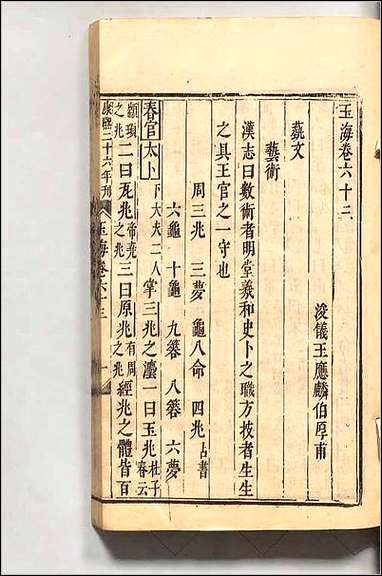 玉海卷六十三
浚儀王應麟伯厚甫
藝文
藝術
漢志曰數術者明堂羲和史卜之職方技者生生
之具王官之一守也
周三兆 三夢 龜八命 四兆 占書
六龜 十龜 九簭 八簭 六夢
春官太卜下大夫二人掌三兆之灋一曰玉兆杜子春云
顓頊之兆二曰瓦兆帝堯之兆三曰原兆有周之兆經兆之體皆百
康熙二十六年刊 玉海卷六十三 一